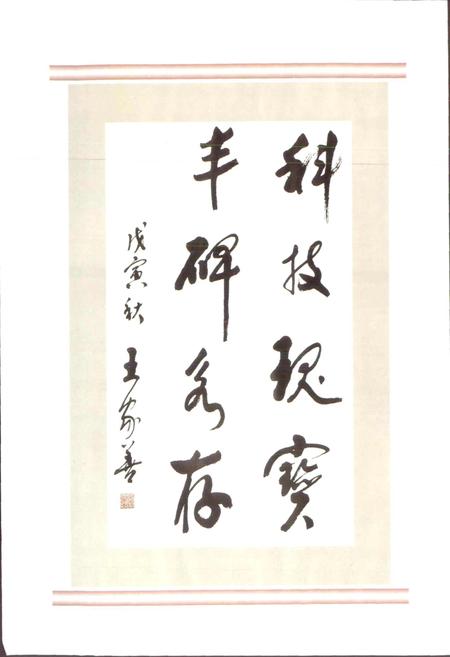 科技瑰寶
丰碑永存
戊寅秋
王家善